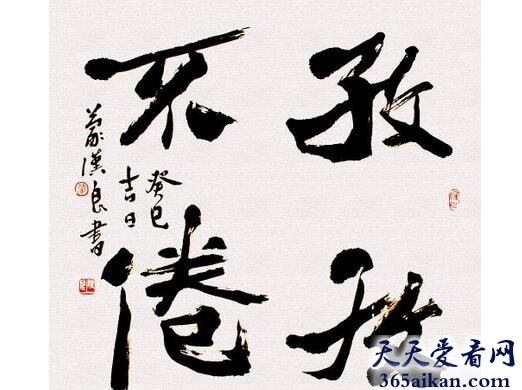 孜孜
不倦
癸巳
吉日
蒙漢良書
天天爱看网
365aikan.com